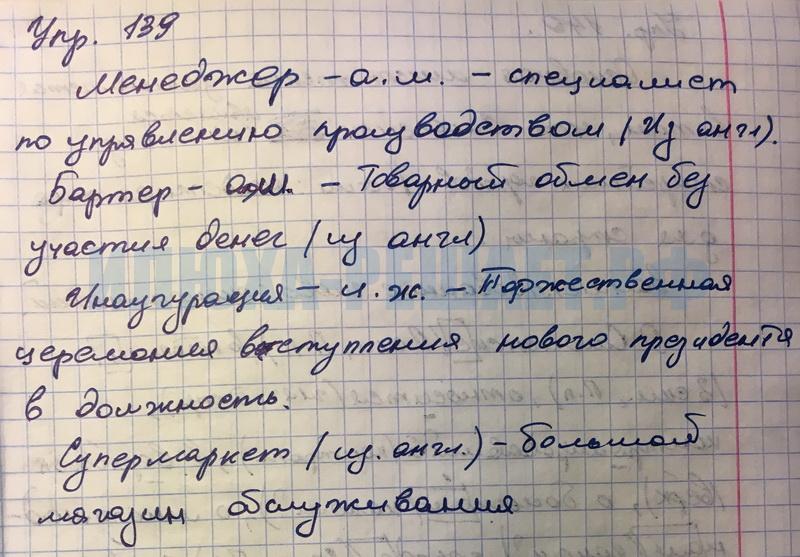 Упр. 139
Менеджер - а.м. - специалист
по управлению производством (Из англ).
Бартер - а.м. - Товарный обмен без
участия денег (из англ)
ИЛЮХА-РЕШАЕТ.РФ
Инаугурация - и.ж. - Торжественная
церемония вступления нового президента
в должность.
Супермаркет (из. англ.) - большой
магазин обслуживания